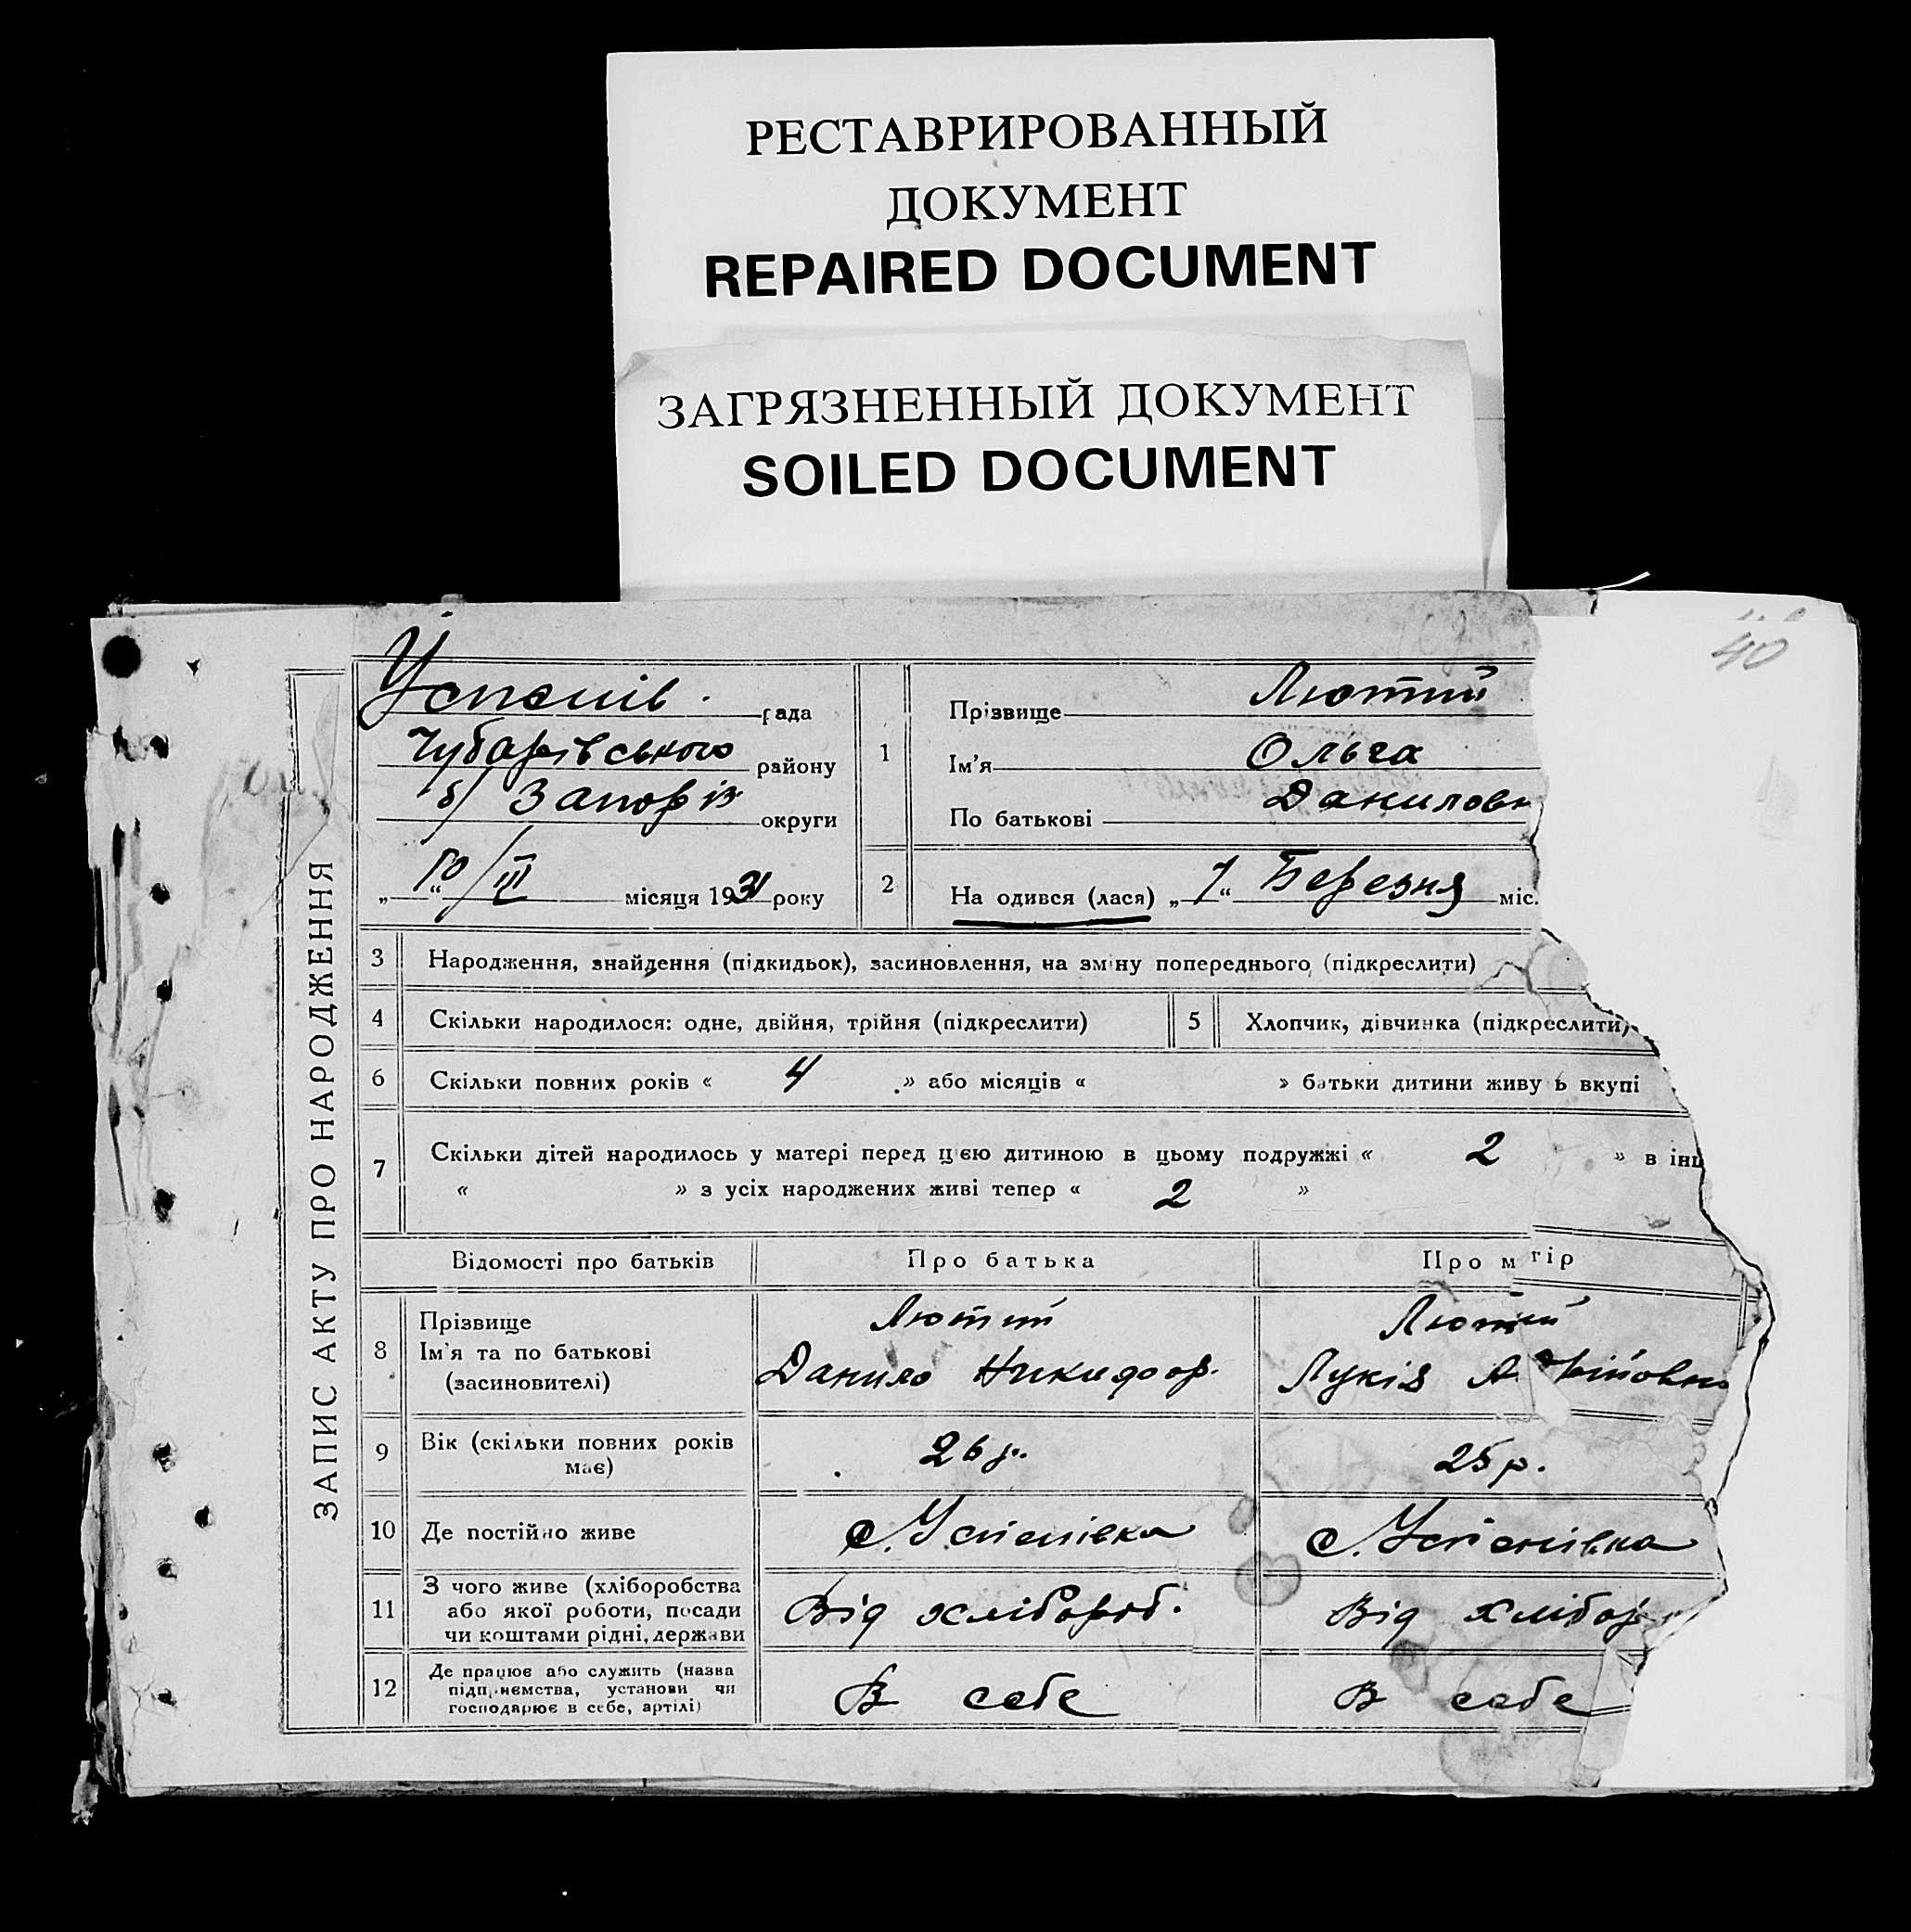 РЕСТАВРИРОВАННЫЙ
ДОКУМЕНТ
REPAIRED DOCUMENT
ЗАГРЯЗНЕННЫЙ ДОКУМЕНТ
SOILED DOCUMENT
40
ЗАПИС АКТУ ПРО НАРОДЖЕННЯ
Успенів. рада
Чубарівського району
б/ Запоріз округи
„10“/III місяця 1931 року
1
Прізвище Лютий
Ім'я Ольга
По батькові Даниловн
2 На одився (лася) „7“ Березня міс.
3 Народження, знайдення (підкидьок), засиновлення, на зміну попереднього (підкреслити)
4 Скільки народилося: одне, двійня, трійня (підкреслити)
5 Хлопчик, дівчинка (підкреслити)
6 Скільки повних років « 4 » або місяців « » батьки дитини живу ь вкупі
7 Скільки дітей народилось у матері перед цією дитиною в цьому подружжі « 2 » в інш
« » з усіх народжених живі тепер « 2 »
Відомості про батьків Про батька Про матір
8 Прізвище Лютий Лютий
Ім'я та по батькові Данило Никифор.  Лукія
(засиновителі)
9 Вік (скільки повних років 26 р. 25 р.
має)
10 Де постійно живе с. Успенівка с. Успенівка
11 З чого живе (хліборобства Від хлібороб. Від хлібор
або якої роботи, посади
чи коштами рідні, держави
12 Де працює або служить (назва В себе В себе
підприємства, установи чи
господарює в себе, артілі)